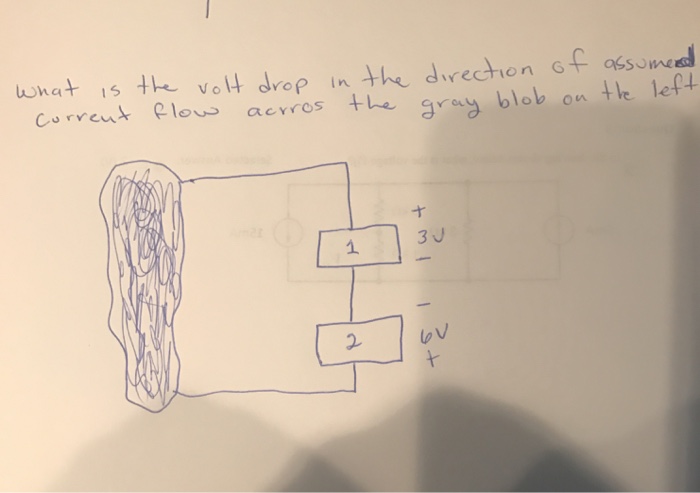 what is the volt drop in the direction of assumed
current flow acrros the gray blob on the left
+
1
3V
-
-
2
6V
+